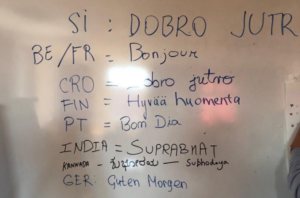 SI : DOBRO JUTR
BE/FR = Bonjour
CRO = Dobro jutro
FIN = Hyvää huomenta
PT = Bom Dia
INDIA = SUPRABHAT
KANNADA - ಶುಭೋದಯ — Subhodaya
GER: Guten Morgen